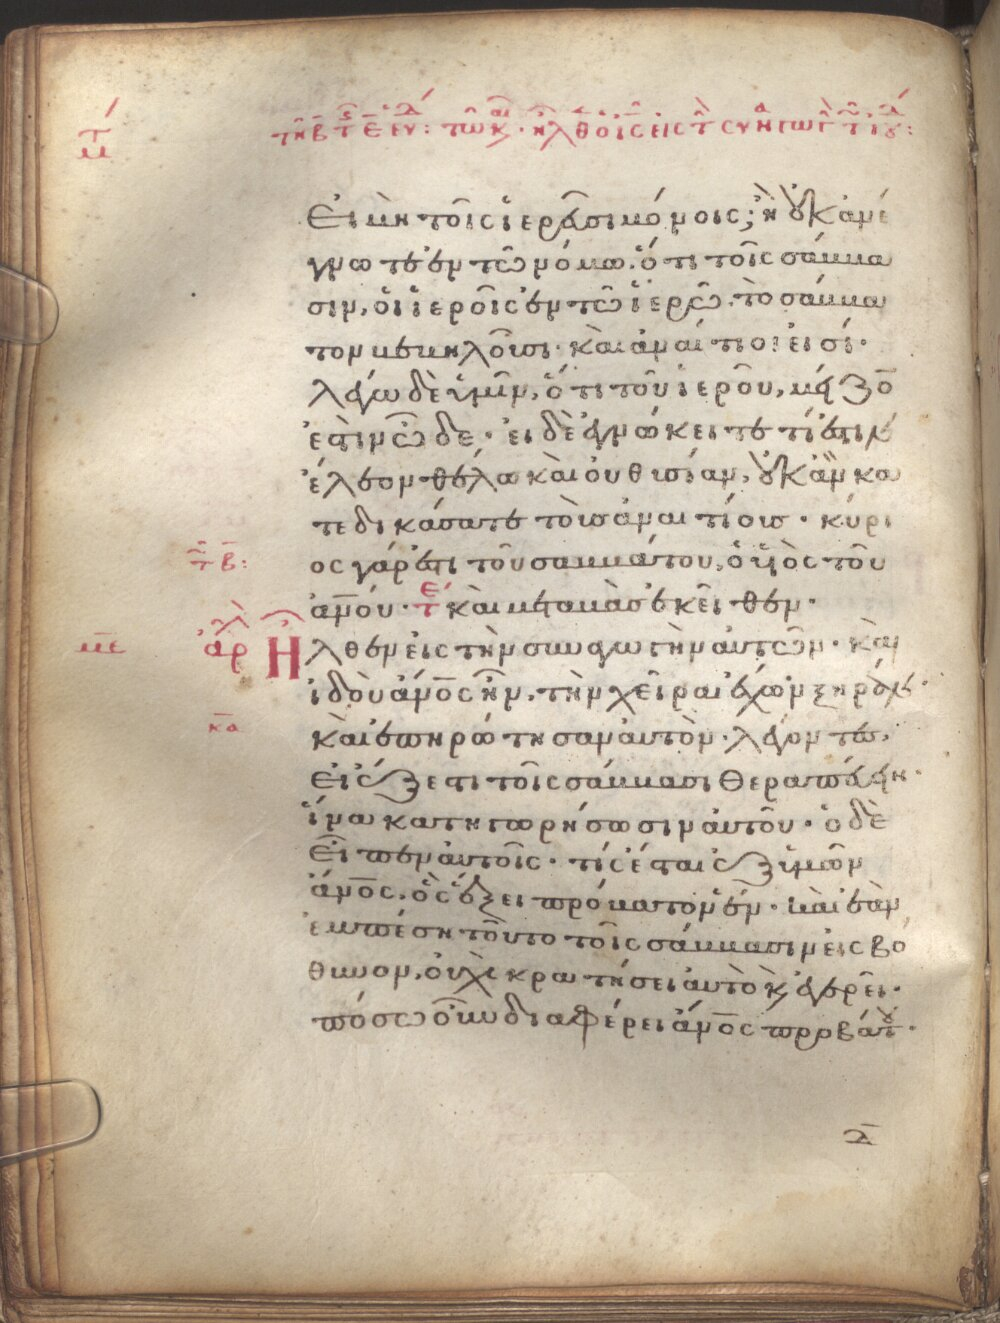 εἰ μὴ τοῖς ἱερεῦσι μόνοις; ἢ οὐκ ἀνέ
γνωτε ἐν τῶ νόμω. ὅτι τοῖς σάββα
σιν, οἱ ἱεροῖς ἐν τῶ ἱερῶ. τὸ σάββα
τον βεβηλοῦσι· καὶ ἀναίτιοι εἰσί·
λέγω δὲ ὑμῖν, ὅτι τοῦ ἱεροῦ, μείζο
ἐστὶν ὧδε· εἰ δὲ ἐγνώκειτε τί ἐστιν
ἔλεον θέλω καὶ οὐ θυσίαν, οὐκ ἂν κα
τεδικάσατε τοὺς ἀναιτίους· κύρι
ος γάρ ἐστι τοῦ σαββάτου, ὁ υἱὸς τοῦ
ἀνου· καὶ μεταβὰς ἐκεῖθεν·
Ηλθεν εἰς τὴν συναγωγὴν αὐτῶν· καὶ
ἰδοὺ ἀνος ἦν, τὴν χεῖρα ἔχων ξηρὰν·
καὶ ἐπηρώτησαν αὐτὸν· λέγοντες,
εἰ ἔξεστι τοῖς σάββασι θεραπεύειν·
ἵνα κατηγορήσωσιν αὐτοῦ· ὁ δὲ
εἶπεν αὐτοῖς· τίς ἔσται ἐξ ὑμῶν
ἄνος, ὃς ἕξει πρόβατον ἕν· καὶ ἐὰν
ἐμπέση τοῦτο τοῖς σάββασιν εἰς βό
θυνον, οὐχὶ κρατήσει αὐτὸ κ ἐγερεῖ·
πόσω οὖν διαφέρει ἄνος προβάτου·